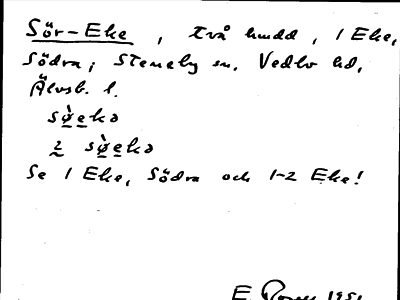 Sör-Eke, två hmdd, 1 Eke,
Södra; Steneby sn, Vedbo hd,
Älvsb. l.
sø̀ekə
i sø̀ekə
Se 1 Eke, Södra och 1-2 Eke!
E. 1951